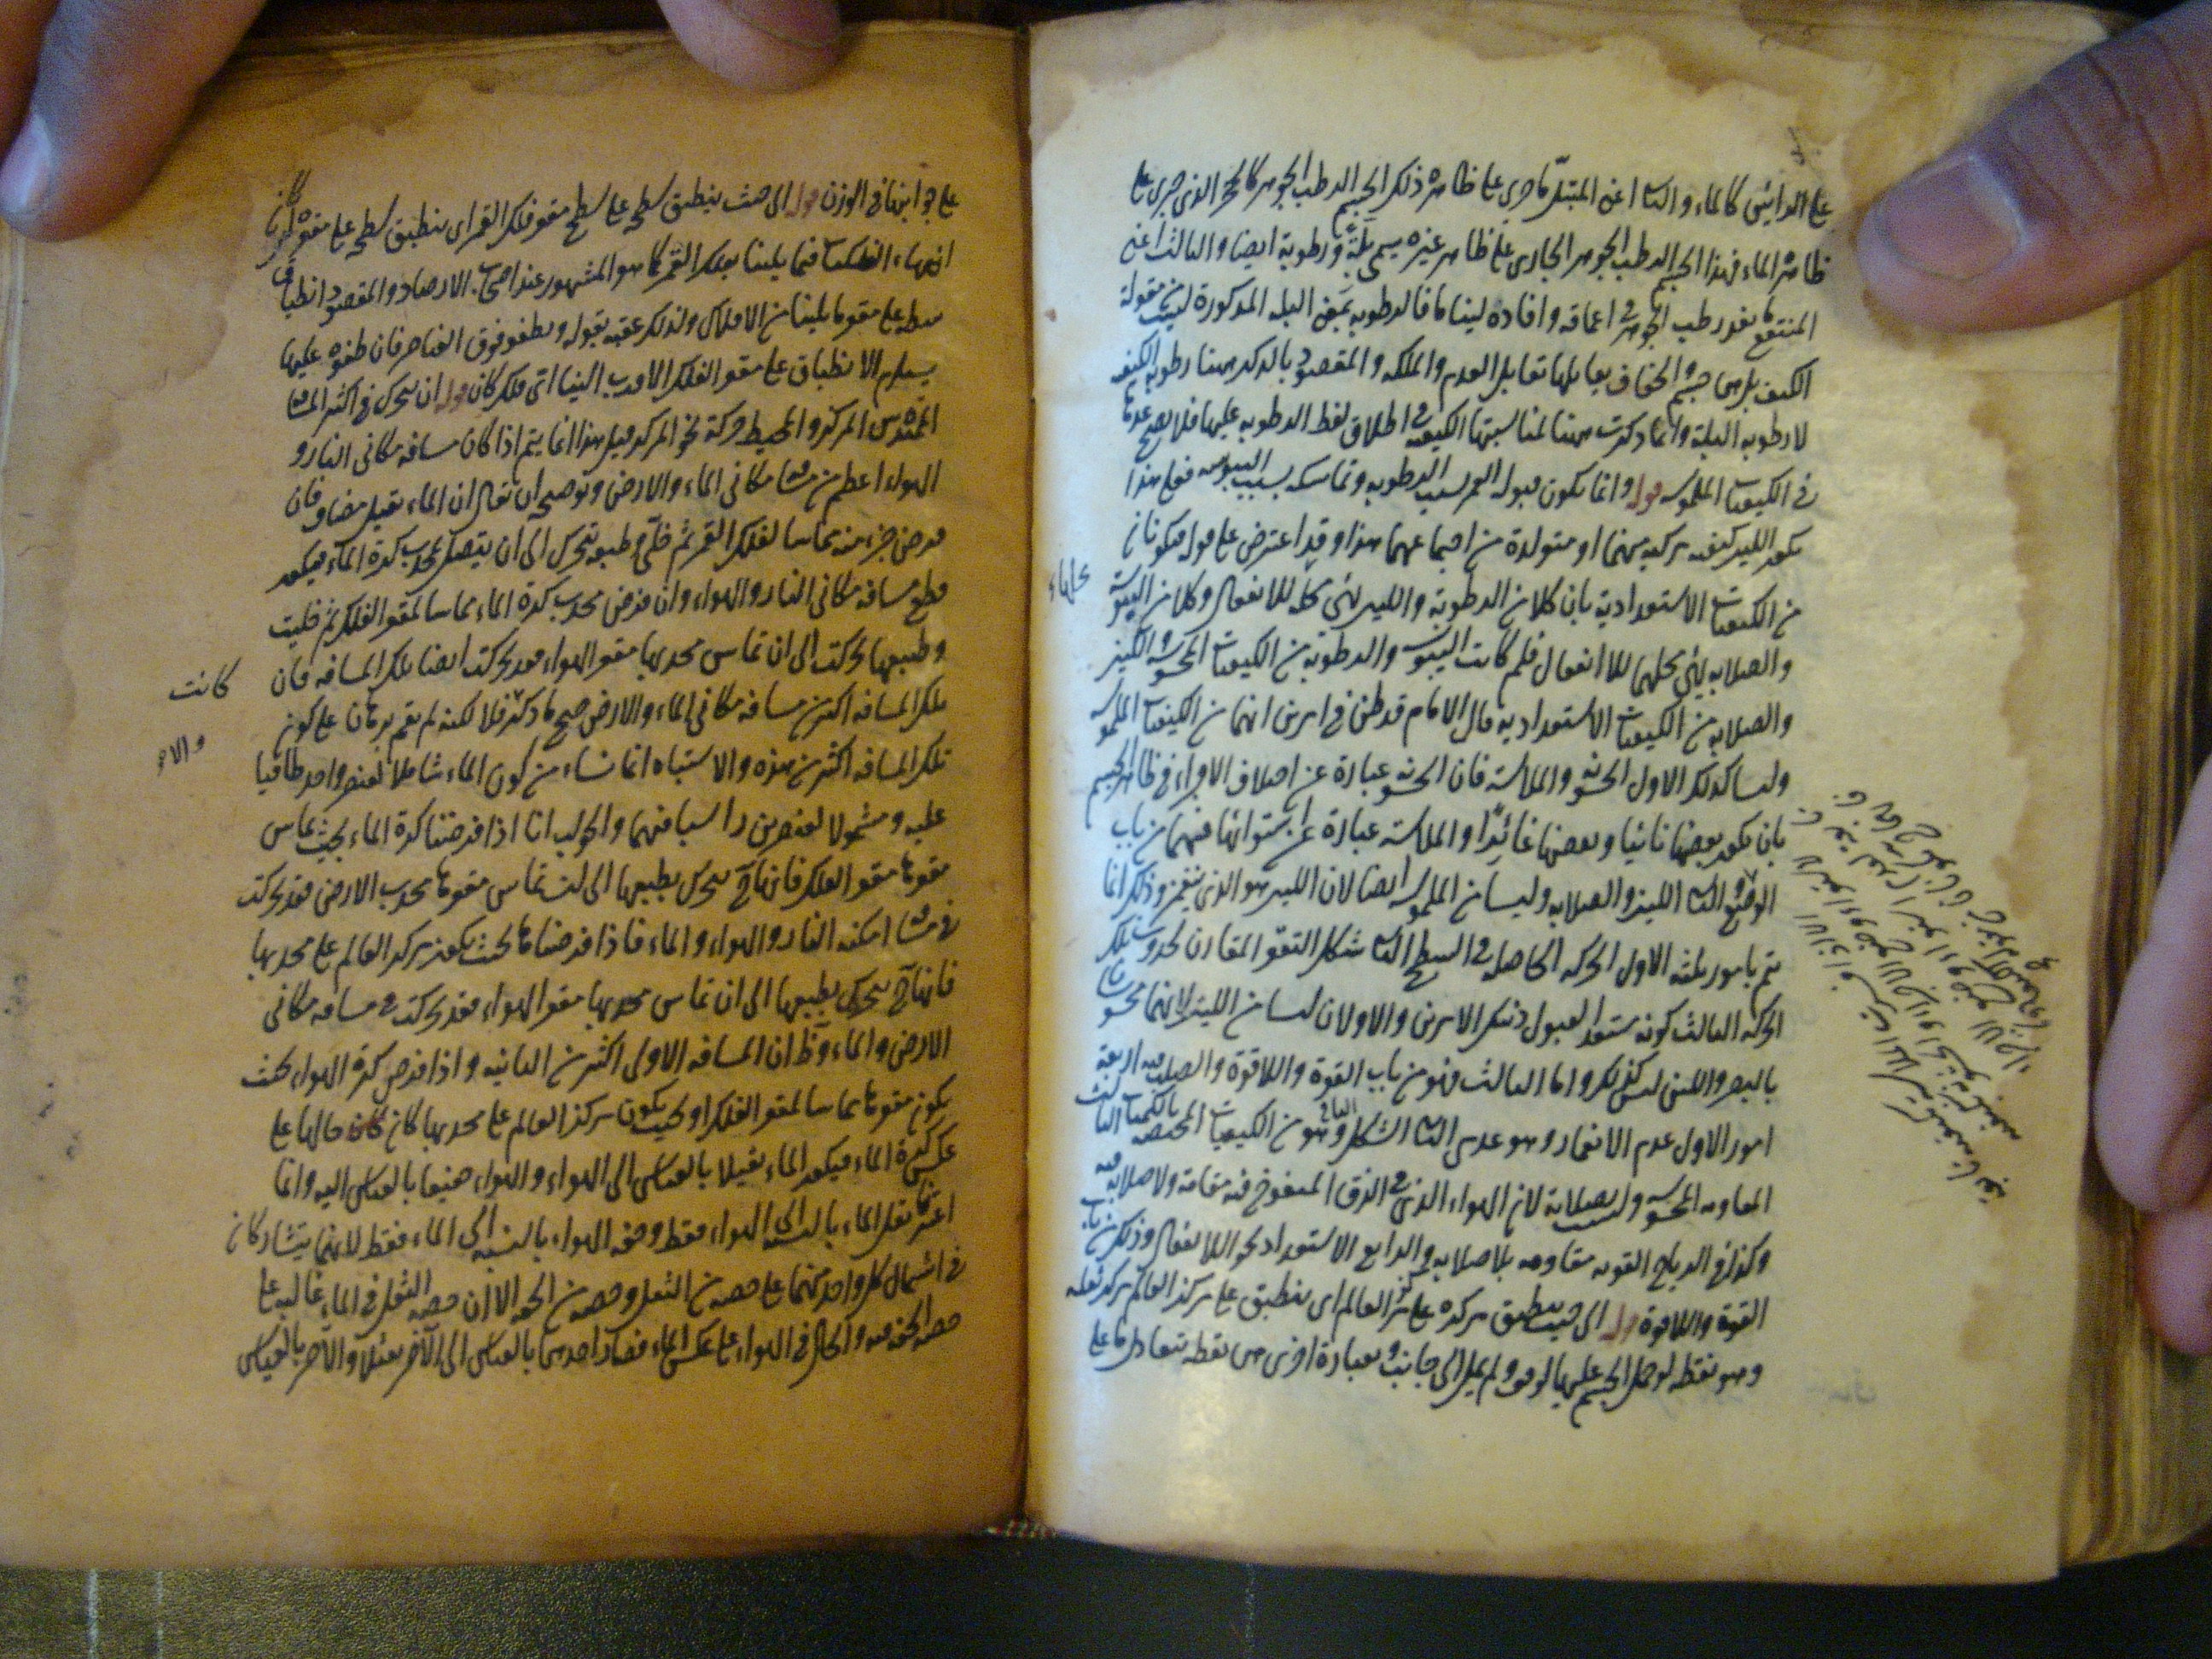 على الرائس كالماء والثانى اعنى المبتل ما جرى على ظاهره ذلك الجسم الرطب الجوهر كالحجر الذى جرى على
ظاهره الماء فهذا الجسم الرطب الجوهر الجارى على ظاهر غيره يسمى بلة ورطوبة ايضا والثالث اعنى
المنتقع ما نفذ رطب الجوهر فى اعماقه وافاده لينا ما فالرطوبه بمعنى البله المذكورة ليست من مقولة
الكيف بل هى جسم والجفاف يقابلها تقابل العدم والملكه والمقصود بالذكر ههنا رطوبه الكيفيه
لا رطوبه البلة وانما ذكرت ههنا لمناسبتها الكيفيه فى اطلاق لفظ الرطوبه عليها فلا يصح عدها
فى الكيفيات الملموسه قوله وانما يكون قبوله الغمز بسبب الرطوبه وتماسكه بسبب اليبوسه فعلى هذا
يكون اللين كيفيه مركبه منهما او متولدة من اجتماعهما هذا وقد اعترض على قوله فيكونان
من الكيفيات الاستعدادية بان كلا من الرطوبة واللين يهيئ محله للانفعال وكلا من اليبوسة
والصلابه يهيئ محلهما للا انفعال فلم كانت اليبوسه والرطوبة من الكيفيات المحسوسه واللين
والصلابه من الكيفيات الاستعداديه قال الامام قد ظن فى امرين انهما من الكيفيات الملموسه
وليسا كذلك الاول الخشونه والملاسة فان الخشونه عبارة عن اختلاف الاجزاء فى ظاهر الجسم
بان يكون بعضها ناتيا وبعضها غائرا والملاسة عبارة عن استوائها فهما من باب
الوضع والثانى اللين والصلابه وليسا من الملموسه ايضا لان اللين هو الذى ينغمز وذلك انما
يتم بامور ثلثه الاول الحركه الحاصله فى السطح الثانى شكل التقعر المقارن لحدوث تلك
الحركه الثالث كونه مستعدا لقبول ذينك الامرين والاولان ليسا من اللين لانهما محسوسان
بالبصر واللين ليس كذلك واما الثالث فهو من باب القوة واللاقوة والصلب فيه اربعة
امور الاول عدم الانغمار وهو عدمى الثانى الشكل الباقى وهو من الكيفيات المختصه بالكميات الثالث
المقاومه المحسوسه وليست بصلابة لان الهواء الذى فى الزق المنفوخ فيه مقاومة ولا صلابه فيه
وكذا فى الرياح القويه مقاومه بلا صلابه والرابع الاستعداد نحو اللا انفعال وذلك من باب
القوة واللاقوة قوله الى حيث ينطبق مركزه على مركز العالم اى ينطبق على مركز العالم مركز ثقله
وهو نقطه لو حمل الجسم عليها لوقف ولم يمل الى جانب وبعبارة اخرى هى نقطه يتعادل ما على
محلهاء
على جوانبها فى الوزن قوله الى حيث ينطبق سطحه على سطح مقعر فلك القمر اى ينطبق سطحه على مقعره لو كان
انتهاء الفلكيات فيما يلينا بفلك القمر كما هو المشهور عند اصحاب الارصاد والمقصود انطباق
سطحه على مقعر ما يلينا من الافلاك ولذلك عقبه بقوله ويطفو فوق العناصر فان طفوه عليها
يستلزم الانطباق على مقعر الفلك الاقرب الينا اى فلك كان قوله ان يتحرك فى اكثر المسافة
الممتدة بين المركز والمحيط حركة نحو المركز قيل هذا انما يتم اذا كان مسافه مكانى النار و
الهواء اعظم من مسافة مكانى الماء والارض وتوضيحه ان يقال ان الماء ثقيل مضاف فان
فرض جزء منه مماسا لفلك القمر ثم خلى وطبعه تحرك الى ان يتصل بمحدب كرة الماء فيكون
قطع مسافه مكانى النار والهواء وان فرض محدب كرة الماء مماسا لمقعر الفلك ثم خليت
وطبعها تحركت الى ان تماس محدبها مقعر الهواء فقد تحركت ايضا تلك المسافه فان كانت
تلك المسافه اكثر من مسافه مكانى الماء والارض صح ما ذكرتم والا فلا لكنه لم يقم برهان على كون
تلك المسافه اكثر من هذه والاشتباه انما نشاء من كون الماء شاملا لعنصر واحد طافيا
عليه ومشمولا لعنصرين راسبا فيهما والجواب انا اذا فرضنا كرة الماء بحيث يماس
مقعرها مقعر الفلك فانها ح تتحرك بطبعها الى ان تماس مقعرها محدب الارض فقد تحركت
فى مسافة امكنه النار والهواء والماء فاذا فرضناها بحيث يكون مركز العالم على محدبها
فانها ح تتحرك بطبعها الى ان تماس محدبها مقعر الهواء فقد تحركت فى مسافه مكانى
الارض والماء وظ ان المسافه الاولى اكثر من الثانيه واذا فرض كرة الهواء بحيث
يكون مقعرها مماسا لمقعر الفلك او بحيث يكون مركز العالم على محدبها كان حالها على
عكس كرة الماء فيكون الماء ثقيلا بالقياس الى الهواء والهواء خفيفا بالقياس اليه وانما
اعتبر ثقل الماء بالنسبه الى الهواء فقط وخفه الهواء بالنسبه الى الماء فقط لانهما يتشاركان
فى اشتمال كل واحد منهما على حصه من الثقل وحصه من الخفه الا ان حصه الثقل فى الماء غالبه على
حصه الخفه فيه والحال فى الهواء على عكس الماء فصار احدهما بالقياس الى الآخر ثقيلا والآخر بالقياس